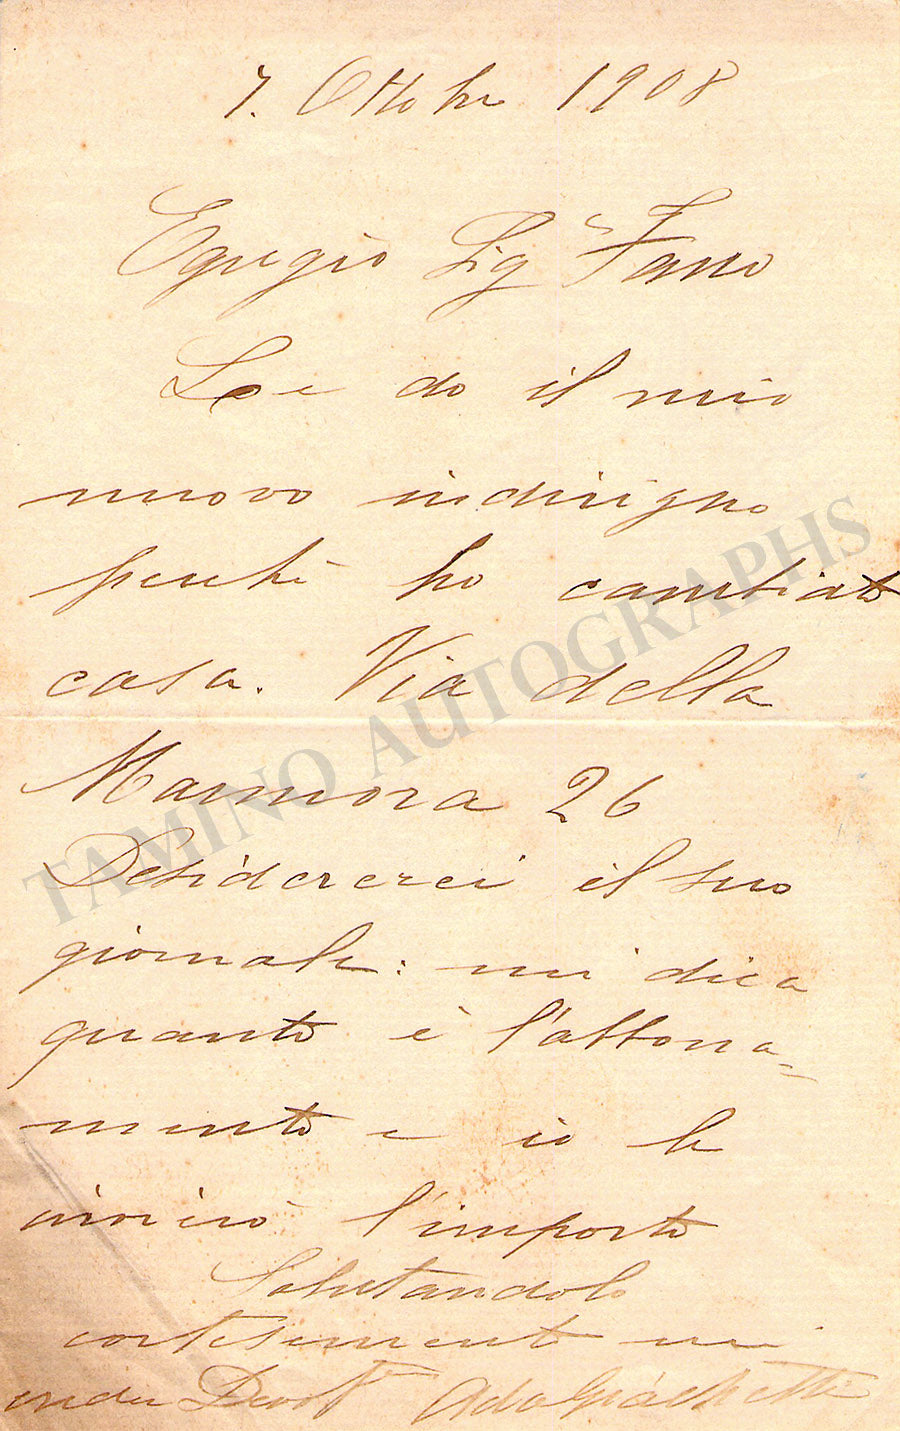 7. Ottobre 1908
Egregio Sigr Fano
Le do il mio
nuovo indirizzo
perchè ho cambiato
casa. Via della
Marmora 26
Desidererei il suo
giornale: mi dica
quanto è l'abbona=
mento e io le
invierò l'importo
Salutandolo
cortesemente mi
creda Devota Ada Giachetti
TAMINO AUTOGRAPHS